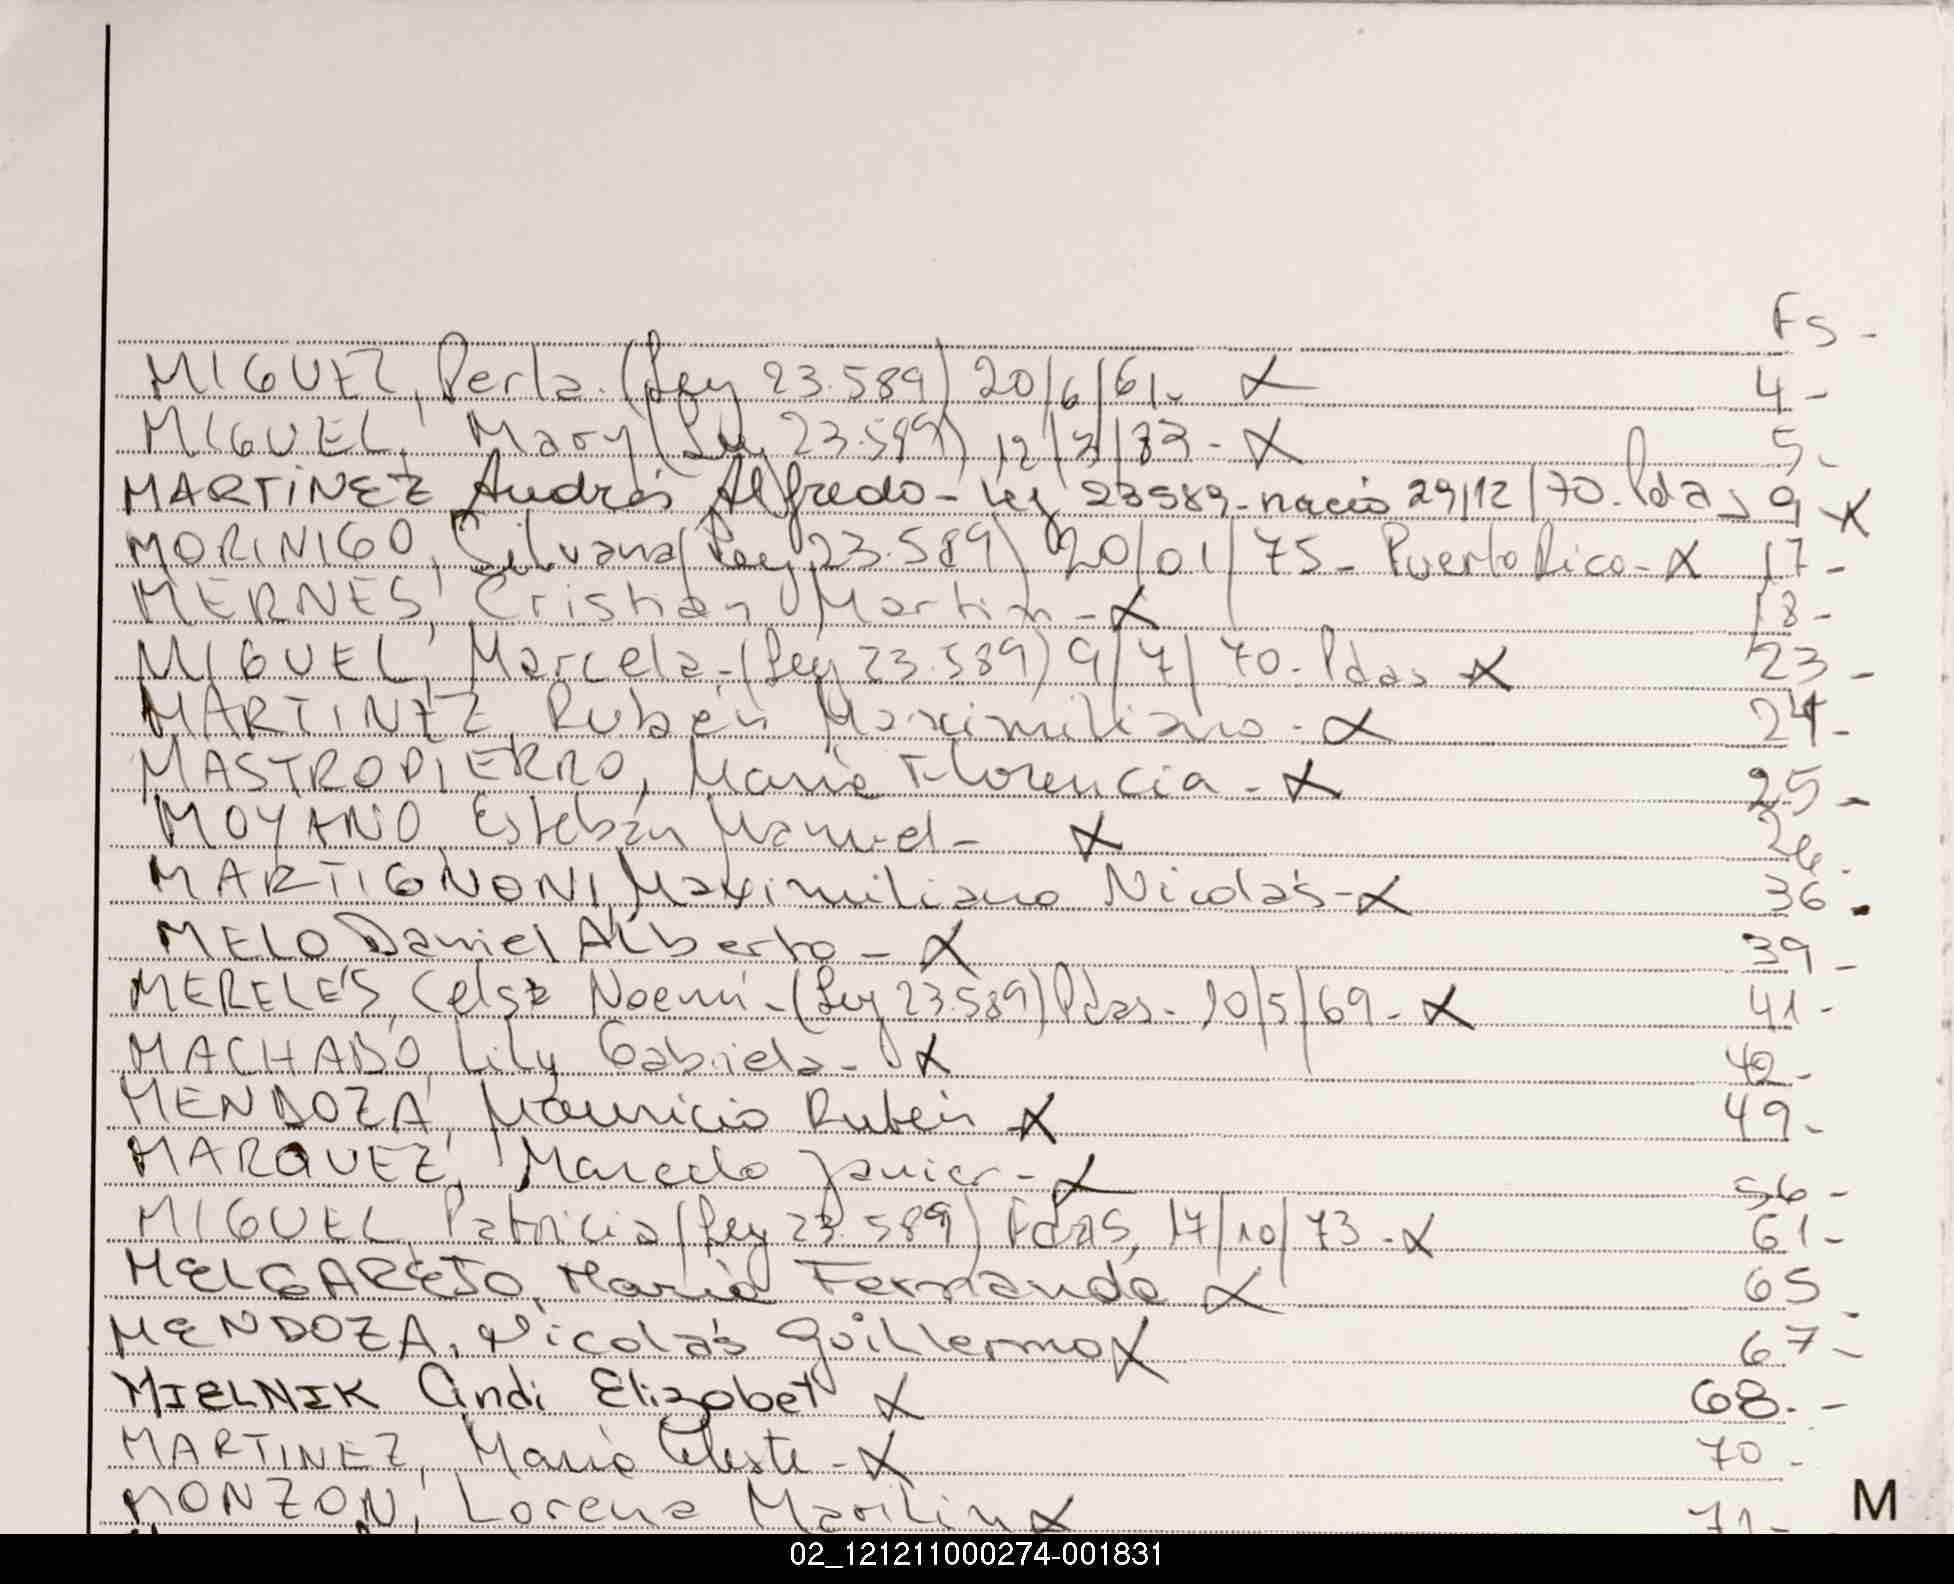 Fs -
MIGUEZ, Perla. (Ley 23.589) 20/6/61. X 4 -
MIGUEL, Mary (Ley 23.589) 12/3/83 - X 5 -
MARTINEZ Andrés Alfredo - Ley 23589 - nació 29/12/70. Pdas 9 X
MORINIGO, Silvana (Ley 23.589) 20/01/75 - Puerto Rico - X 17 -
MERNES, Cristian Martin - X 18 -
MIGUEL, Marcela - (Ley 23.589) 9/7/70 - Pdas X 23 -
MARTINEZ, Rubén Maximiliano - X 24 -
MASTROPIERRO, María Florencia - X 25 -
MOYANO Esteban Manuel - X 26 -
MARTIGNONI, Maximiliano Nicolás - X 36 -
MELO Daniel Alberto - X 39 -
MERELES, Celsa Noemí - (Ley 23.589) Pdas - 10/5/69 - X 41 -
MACHADO, Lily Gabriela - X 42 -
MENDOZA, Mauricio Rubén X 49 -
MARQUEZ, Marcelo Javier - X 56 -
MIGUEL, Patricia (Ley 23.589) Pdas, 17/10/73 - X 61 -
MELGAREJO, María Fernanda X 65 -
MENDOZA, Nicolás Guillermo X 67 -
MIELNIK Cindi Elizabet X 68. -
MARTINEZ, María Celeste - X 70 -
MONZON, Lorena Marilin X 71 -
M
02_121211000274-001831